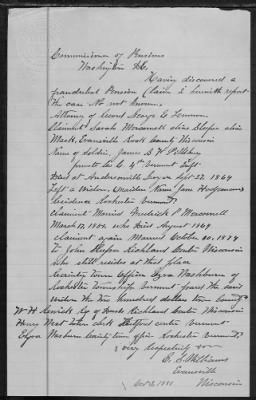 Commissioner of Pensions
Washington D.C.
Having discovered a
fraudulent Pension Claim I herewith report
the case No not known.
Attorney of record George E. Lemmon
Claimant Sarah Morconnell alias Sleeper alias
Mack, Evansville Rock County Wisconsin
Name of Soldier, James B. H.
private Co G. 4th Vermont Inft
Died at Andersonville Ga on Sept 22, 1864
Left a Widow, Maiden Name Jane
Residence Rochester Vermont
Claimant Married Frederick P Morconnell
March 17, 1852. who died August 1869
Claimant again Married October 20, 1874
to John Richland Center Wisconsin
Who still resides at that place
County Town Officer Ezra Washburn of
Rochester Township Vermont found the said
widow the two hundred dollars town bounty
Wm H. of Records Richland Center Wisconsin
Henry West Town clerk Thetford center Vermont
Ezra Washburn County town officer Rochester Vermont
Very Respectfully
C. E. Williams
Evansville
Oct 8, Wisconsin